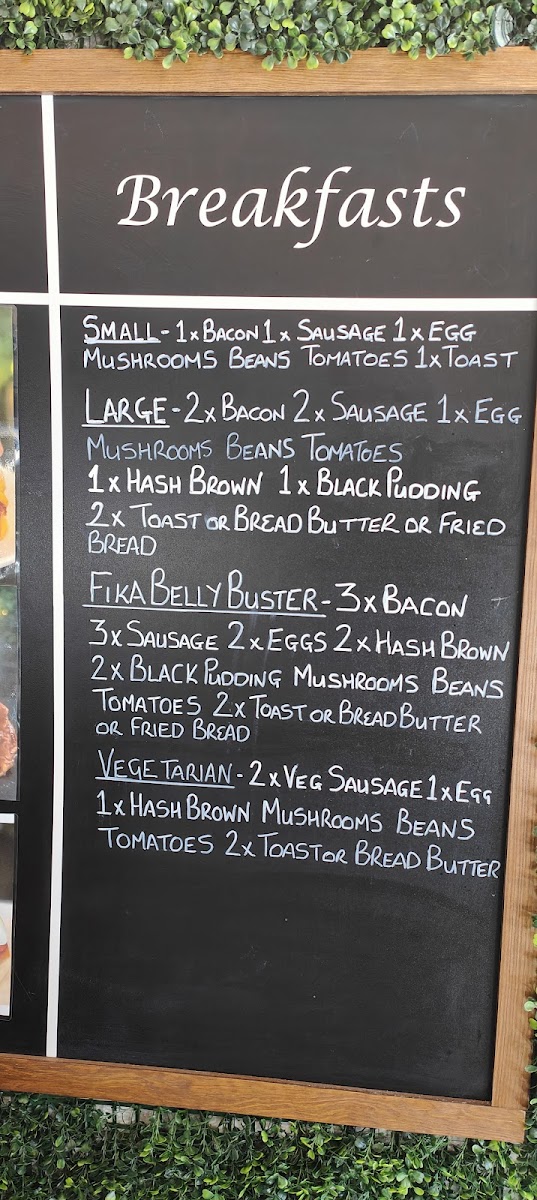 Breakfasts
SMALL - 1x BACON 1x SAUSAGE 1x EGG
MUSHROOMS BEANS TOMATOES 1x TOAST
LARGE - 2x BACON 2x SAUSAGE 1x EGG
MUSHROOMS BEANS TOMATOES
1x HASH BROWN 1x BLACK PUDDING
2x TOAST OR BREAD BUTTER OR FRIED
BREAD
FIKA BELLY BUSTER - 3x BACON
3x SAUSAGE 2x EGGS 2x HASH BROWN
2x BLACK PUDDING MUSHROOMS BEANS
TOMATOES 2x TOAST OR BREAD BUTTER
OR FRIED BREAD
VEGETARIAN - 2x VEG SAUSAGE 1x EGG
1x HASH BROWN MUSHROOMS BEANS
TOMATOES 2x TOAST OR BREAD BUTTER